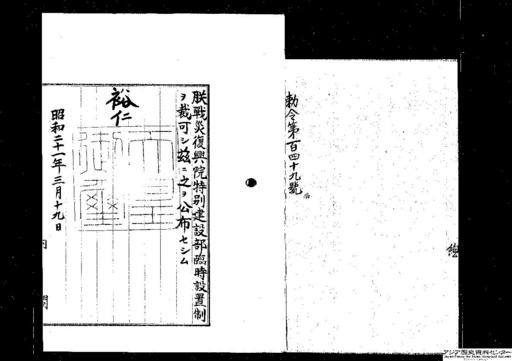 勅令第百四十九號
朕戰災復興院特別建設部臨時設置制
ヲ裁可シ茲ニ之ヲ公布セシム
裕仁
天皇御璽
昭和二十一年三月十九日
内閣
アジア歴史資料センター